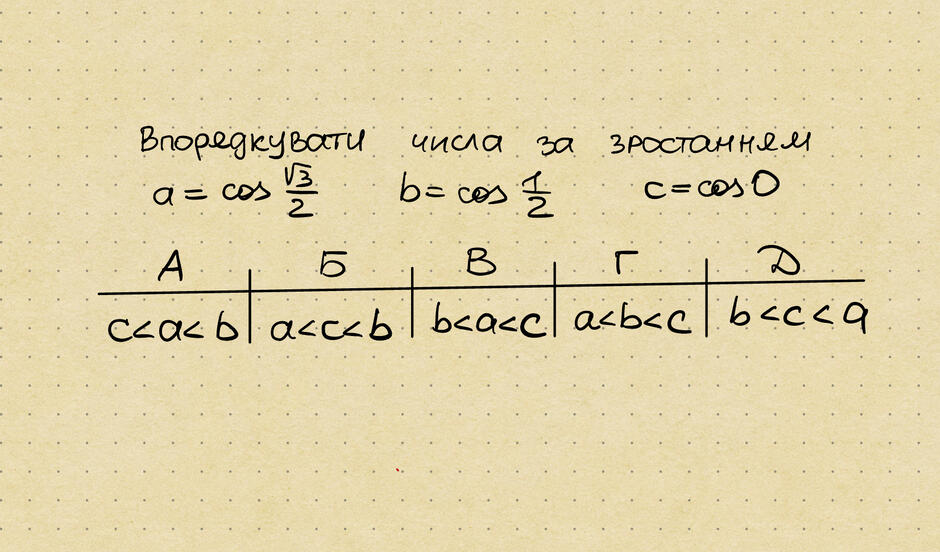 Впорядкувати числа за зростанням
a = cos √3/2 b = cos 1/2 c = cos 0
А Б В Г Д
c<a<b a<c<b b<a<c a<b<c b<c<a